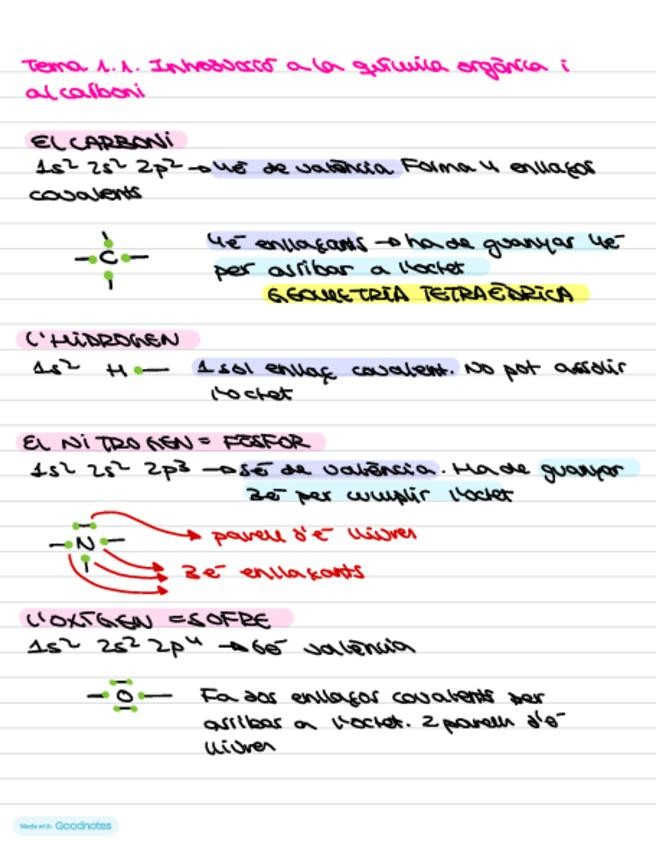 Tema 1.1. Introducció a la química orgànica i
al carboni
EL CARBONI
1s² 2s² 2p² → 4e⁻ de valència Forma 4 enllaços
covalents
C
4e⁻ enllaçants → ha de guanyar 4e⁻
per arribar a l'octet
GEOMETRIA TETRAÈDRICA
L'HIDROGEN
1s² H 1 sol enllaç covalent. No pot assolir
l'octet
EL NITROGEN = FÒSFOR
1s² 2s² 2p³ → 5e⁻ de valència. Ha de guanyar
3e⁻ per cumplir l'octet
N
parell d'e⁻ lliures
3e⁻ enllaçants
L'OXÍGEN = SOFRE
1s² 2s² 2p⁴ → 6e⁻ valència
O
Fa dos enllaços covalents per
arribar a l'octet. 2 parells d'e⁻
lliures
Made with Goodnotes